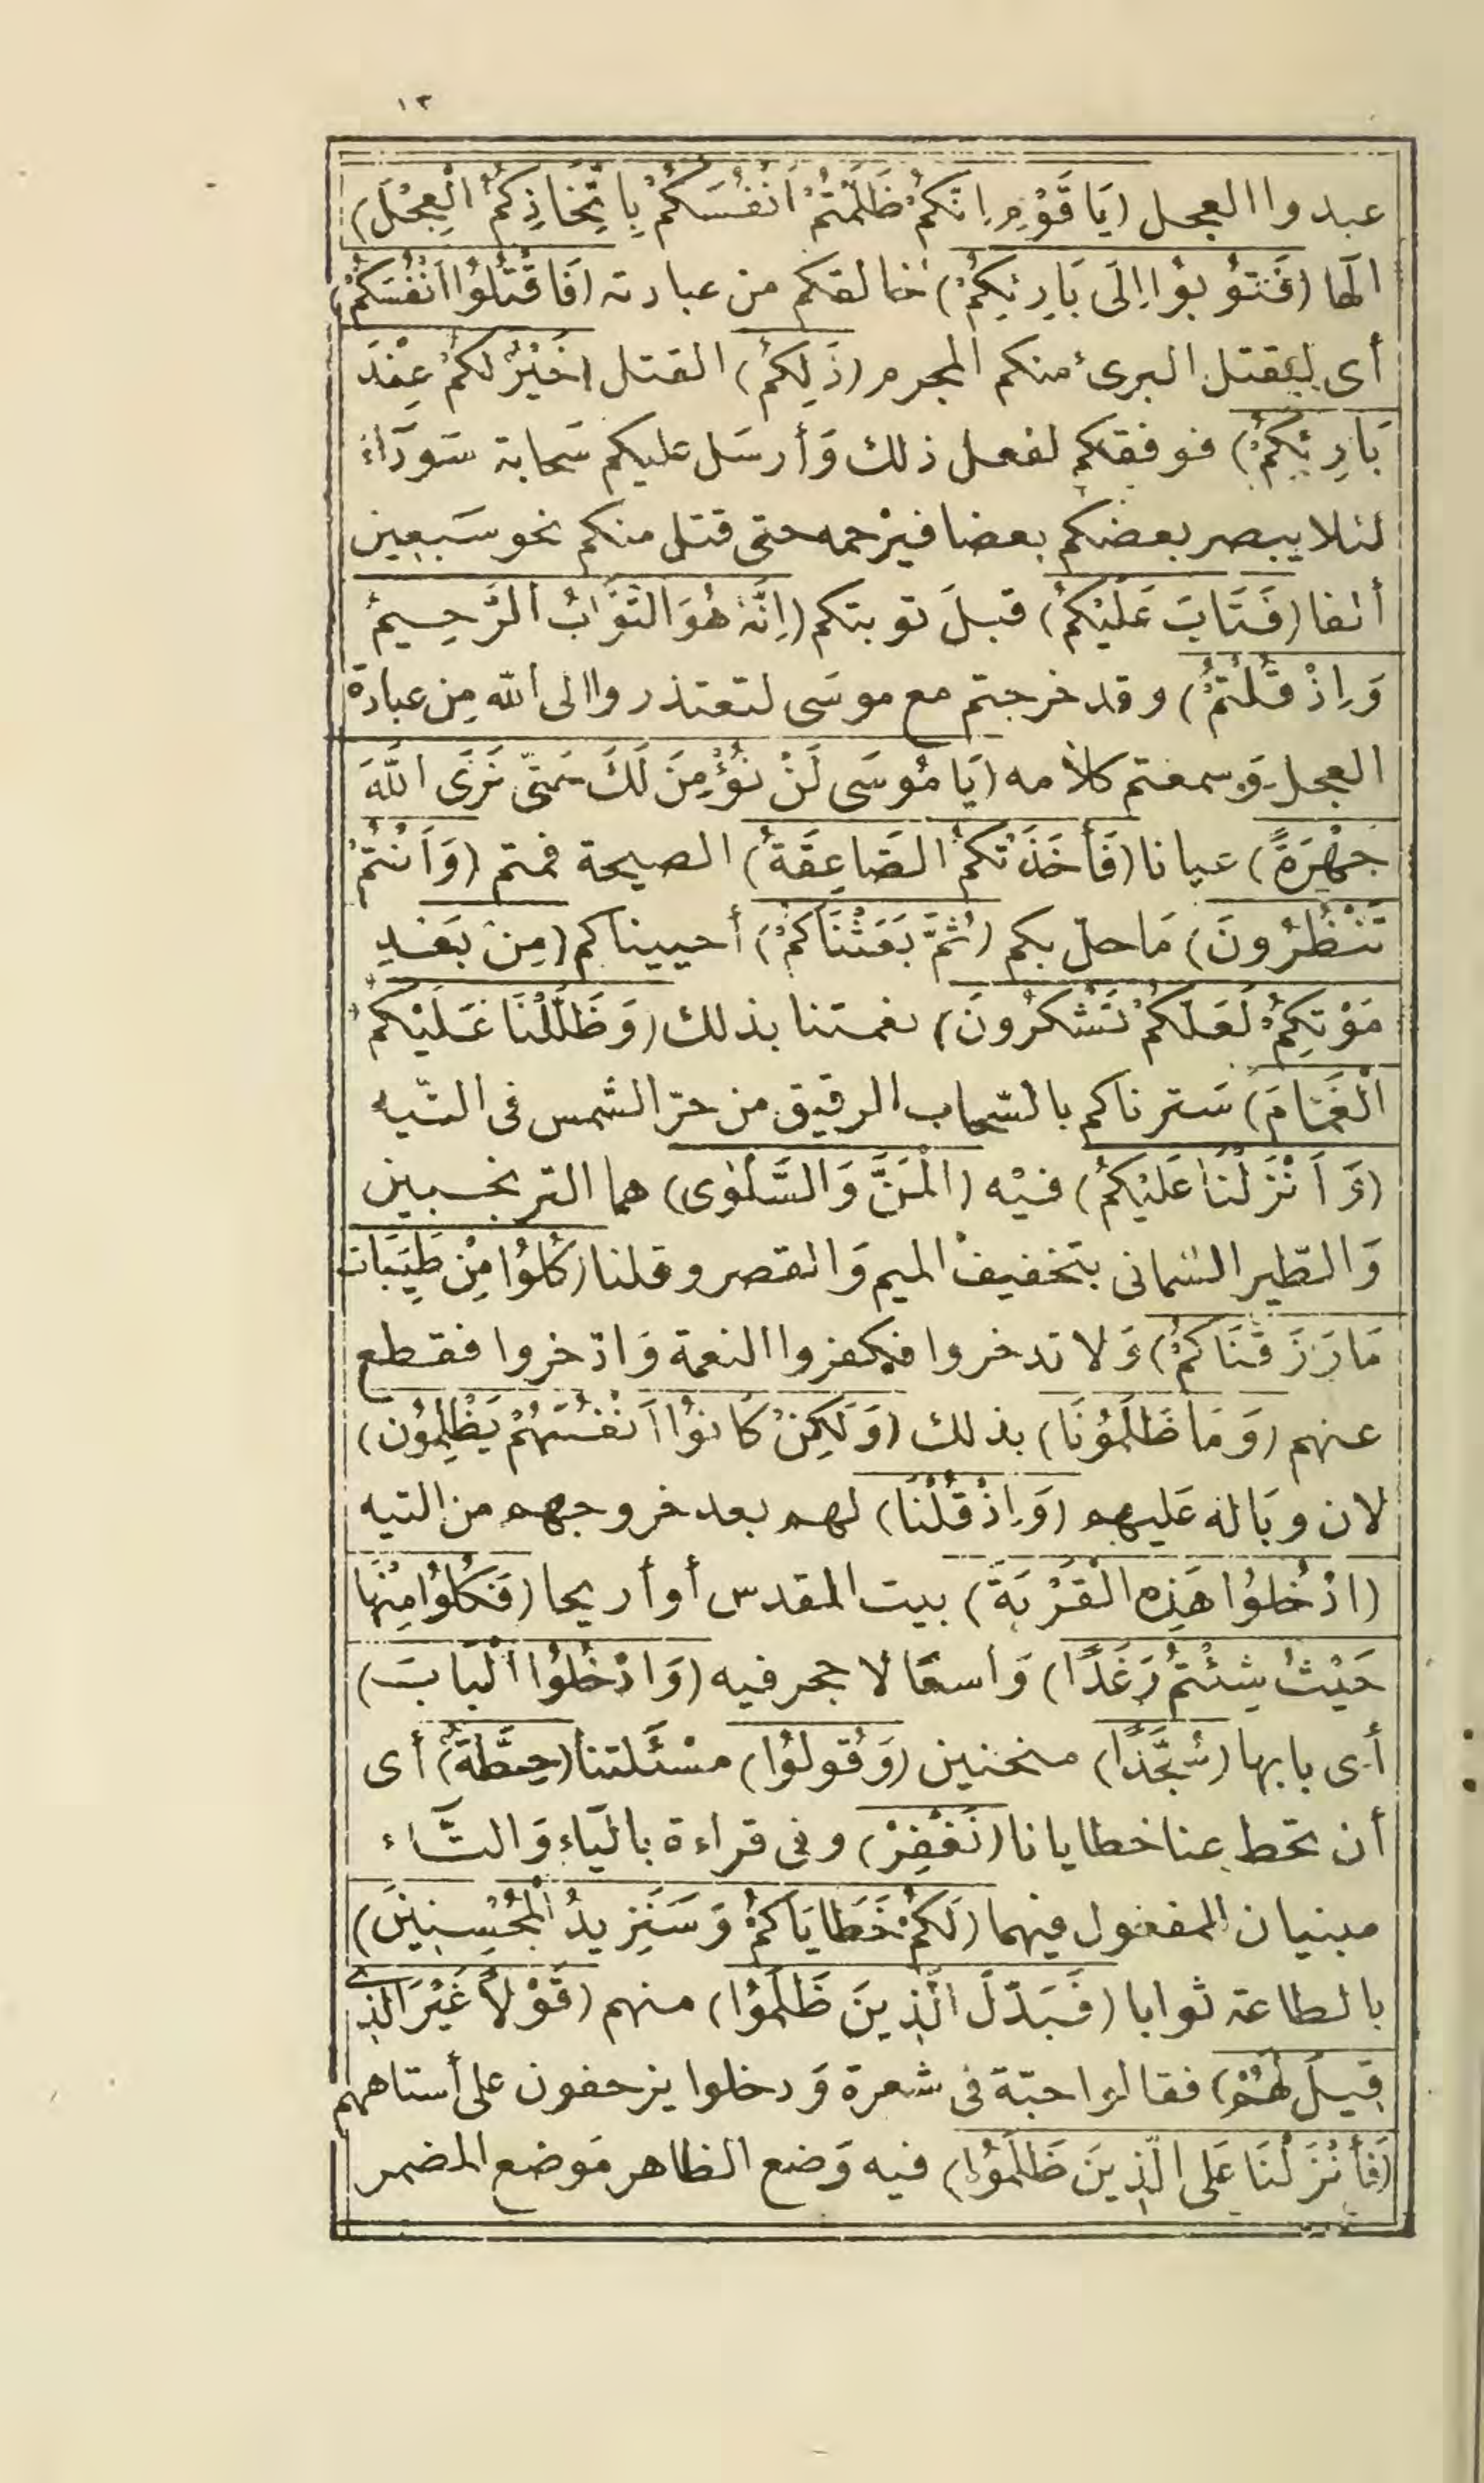 ١٣
عبدوا العجل (يَا قَوْمِ إِنَّكُمْ ظَلَمْتُمْ أَنْفُسَكُمْ بِاتِّخَاذِكُمُ الْعِجْلَ)
الها (فَتُوبُوا إِلَى بَارِئِكُمْ) خالقكم من عبادته (فَاقْتُلُوا أَنْفُسَكُمْ)
أى ليقتل البرىء منكم المجرم (ذَلِكُمْ) القتل (خَيْرٌ لَكُمْ عِنْدَ
بَارِئِكُمْ) فوفقكم لفعل ذلك وَأرسَل عليكم سَحابة سَودَاء
لئلا يبصر بعضكم بعضا فيرْحمه حتى قتل منكم نحو سَبعين
ألفا (فَتَابَ عَلَيْكُمْ) قبلَ توبتكم (إِنَّهُ هُوَ التَّوَّابُ الرَّحِيمُ
وَإِذْ قُلْتُمْ) وقد خرجتم مع موسَى لتعتذروا الى الله مِن عبادة
العجل وَسمعتم كلامه (يَا مُوسَى لَنْ نُؤْمِنَ لَكَ حَتَّى نَرَى اللَّهَ
جَهْرَةً) عيانا (فَأَخَذَتْكُمُ الصَّاعِقَةُ) الصيحة فمتم (وَأَنْتُمْ
تَنْظُرُونَ) مَا حلّ بكم (ثُمَّ بَعَثْنَاكُمْ) أحييناكم (مِنْ بَعْدِ
مَوْتِكُمْ لَعَلَّكُمْ تَشْكُرُونَ) نعمتنا بذلك (وَظَلَّلْنَا عَلَيْكُمُ
الْغَمَامَ) سَترناكم بالسّحاب الرقيق من حرّ الشمس فى التّيه
(وَأَنْزَلْنَا عَلَيْكُمُ) فيْه (الْمَنَّ وَالسَّلْوَى) هما الترنجبين
وَالطّير السّمانى بتخفيف الميم وَالقصر وقلنا (كُلُوا مِنْ طَيِّبَاتِ
مَا رَزَقْنَاكُمْ) وَلا تدخروا فكفروا النعمة وَادّخروا فقطع
عنهم (وَمَا ظَلَمُونَا) بذلك (وَلَكِنْ كَانُوا أَنْفُسَهُمْ يَظْلِمُون)
لان وبَاله عَليهم (وَإِذْ قُلْنَا) لهم بعد خروجهم من التيه
(ادْخُلُوا هَذِهِ الْقَرْيَةَ) بيت المقدس أو أريحا (فَكُلُوا مِنْهَا
حَيْثُ شِئْتُمْ رَغَدًا) وَاسعًا لا حجر فيه (وَادْخُلُوا الْبَابَ)
أى بابها (سُجَّدًا) منحنين (وَقُولُوا) مسْئَلتنا (حِطَّةٌ) أى
أن تحط عنا خطايانا (نَغْفِرْ) وفى قراءة باليَاء وَالتَّاء
مبنيان للمفعول فيهما (لَكُمْ خَطَايَاكُمْ وَسَنَزِيدُ الْمُحْسِنِينَ)
بالطاعة ثوابا (فَبَدَّلَ الَّذِينَ ظَلَمُوا) منهم (قَوْلًا غَيْرَ الَّذِى
قِيلَ لَهُمْ) فقالوا حبّة فى شعرة وَدخلوا يزحفون على أستاههم
(فَأَنْزَلْنَا عَلَى الَّذِينَ ظَلَمُوا) فيه وَضع الظاهر مَوضع المضمر